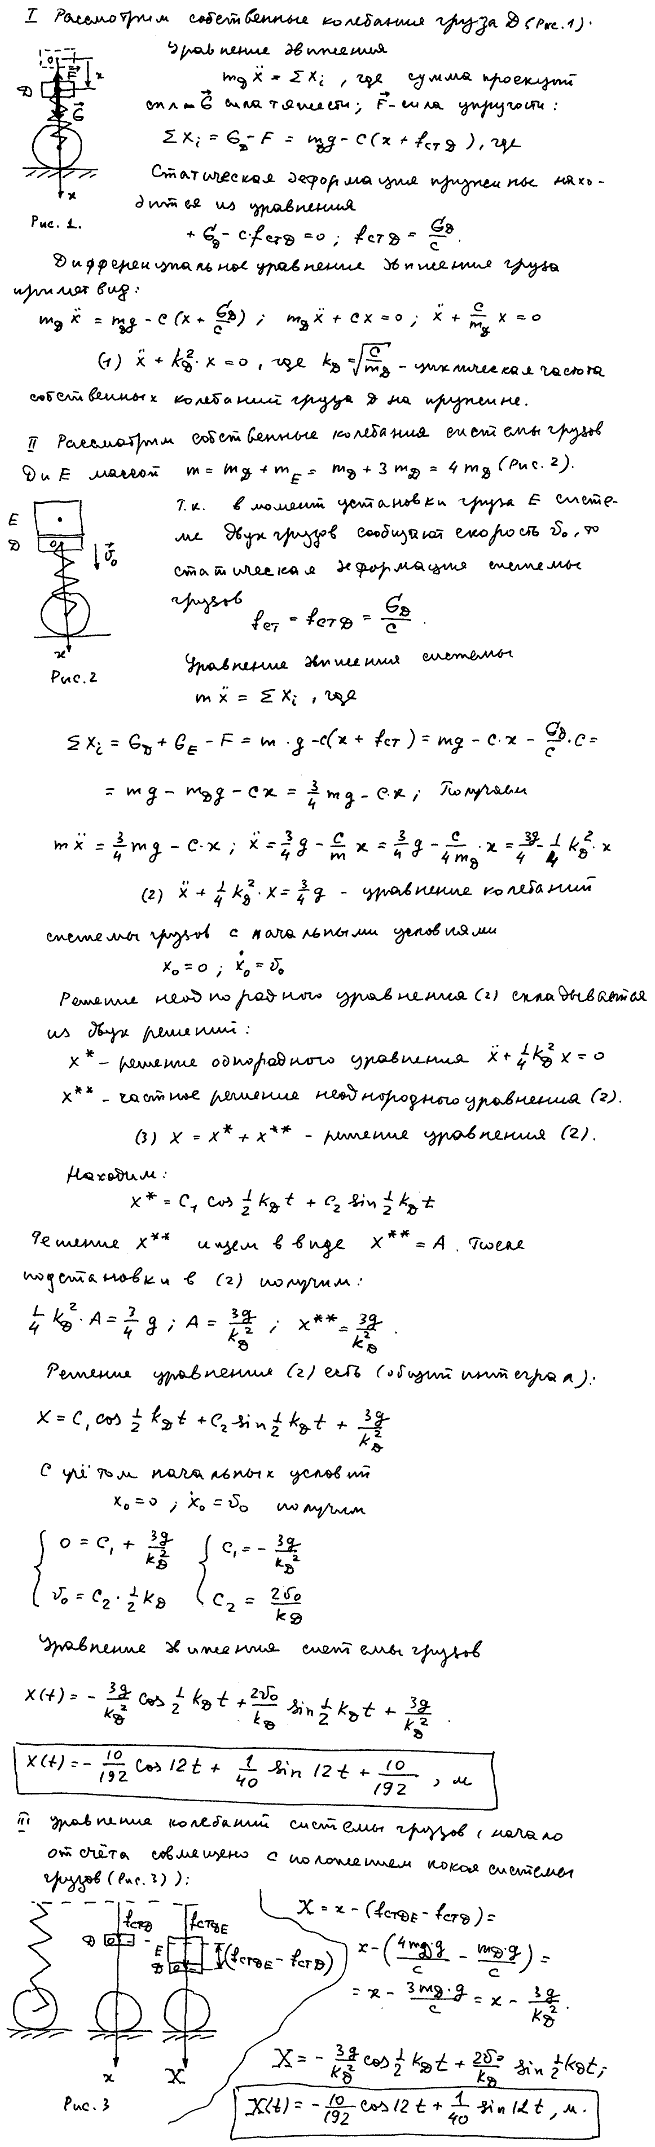 I Рассмотрим собственные колебания груза D (Рис.1).
Уравнение движения
m_D ẍ = Σ X_i , где сумма проекций
сил – G⃗ сила тяжести; F⃗ - сила упругости:
Σ X_i = G_D - F = m_D g - c(x + f_ст D), где
Статическая деформация пружины нахо-
дится из уравнения
+ G_D - c·f_ст D = 0 ; f_ст D = G_D/c .
O
F⃗
x
D
G⃗
x
Рис. 1.
Дифференциальное уравнение движения груза
примет вид:
m_D ẍ = m_D g - c (x + G_D/c) ; m_D ẍ + cx = 0 ; ẍ + c/m_D x = 0
(1) ẍ + k_D²· x = 0 , где k_D = √(c/m_D) - циклическая частота
собственных колебаний груза D на пружине.
II Рассмотрим собственные колебания системы грузов
D и E массой m = m_D + m_E = m_D + 3 m_D = 4 m_D (Рис. 2).
Т.к. в момент установки груза E систе-
ме двух грузов сообщают скорость v₀, то
статическая деформация системы
грузов
f_ст = f_ст D = G_D/c .
E
D
O
v⃗₀
x
Рис. 2
Уравнение движения системы
m ẍ = Σ X_i , где
Σ X_i = G_D + G_E - F = m · g - c(x + f_ст) = mg - c·x - G_D/c · c =
= mg - m_D g - cx = 3/4 mg - c·x ; Получаем
m ẍ = 3/4 mg - c·x ; ẍ = 3/4 g - c/m x = 3/4 g - c/4m_D · x = 3g/4 - 1/4 k_D² · x
(2) ẍ + 1/4 k_D² · x = 3/4 g - уравнение колебаний
системы грузов с начальными условиями
x₀ = 0 ; ẋ₀ = v₀
Решение неоднородного уравнения (2) складывается
из двух решений:
x* - решение однородного уравнения ẍ + 1/4 k_D² x = 0
x** - частное решение неоднородного уравнения (2).
(3) x = x* + x** - решение уравнения (2).
Находим:
x* = C₁ cos 1/2 k_D t + C₂ sin 1/2 k_D t
Решение x** ищем в виде x** = A . После
подстановки в (2) получим:
1/4 k_D² · A = 3/4 g ; A = 3g/k_D² ; x** = 3g/k_D² .
Решение уравнения (2) есть (общий интеграл):
x = C₁ cos 1/2 k_D t + C₂ sin 1/2 k_D t + 3g/k_D²
С учётом начальных условий
x₀ = 0 ; ẋ₀ = v₀ получим
{ 0 = C₁ + 3g/k_D² { C₁ = - 3g/k_D²
v₀ = C₂ · 1/2 k_D C₂ = 2v₀/k_D
Уравнение движения системы грузов
x(t) = - 3g/k_D² cos 1/2 k_D t + 2v₀/k_D sin 1/2 k_D t + 3g/k_D² .
x(t) = - 10/192 cos 12 t + 1/40 sin 12 t + 10/192 , м
III Уравнение колебаний системы грузов (начало
отсчёта совмещено с положением покоя системы
грузов (Рис. 3)):
f_ст D
f_ст DE
D
O
E
D
O
(f_ст DE - f_ст D)
x
X
Рис. 3
X = x - (f_ст DE - f_ст D) =
x - (4m_D·g/c - m_D·g/c) =
= x - 3m_D·g/c = x - 3g/k_D² .
X = - 3g/k_D² cos 1/2 k_D t + 2v₀/k_D sin 1/2 k_D t ;
X(t) = - 10/192 cos 12 t + 1/40 sin 12 t , м.